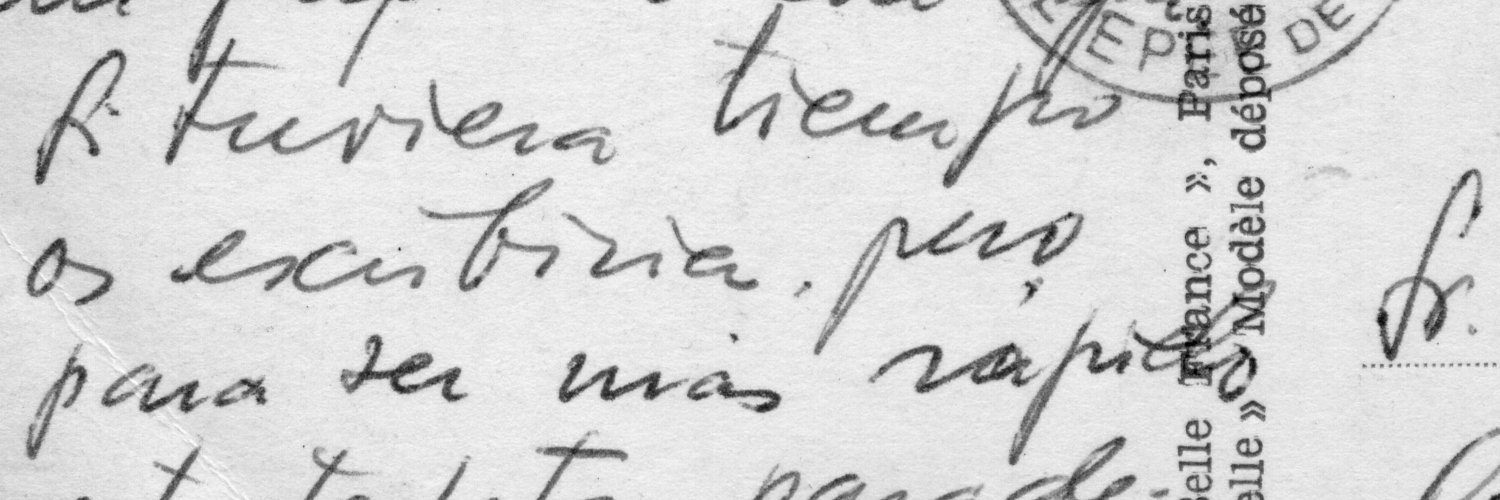 Si tuviera tiempo
os escribiria, pero
para ser más rápido
Sr.
Belle France », Paris
elle » Modèle déposé